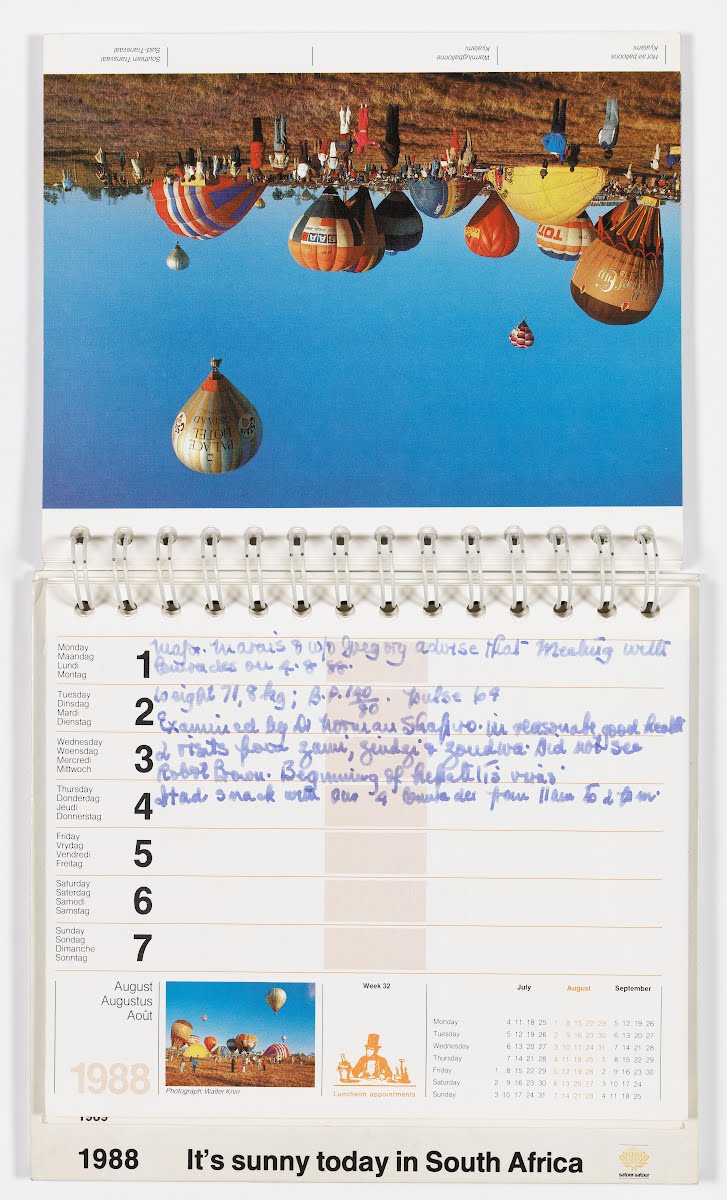 Hot air balloons
Kyalami
Warmlugballonne
Kyalami
Southern Transvaal
Suid-Transvaal
SAA
TOTAL
PALACE
HOTEL
GSTAAD
Monday
Maandag
Lundi
Montag
1
Major. Marais & W/O Gregory advise that meeting with
Comrades on 4.8.88.
Tuesday
Dinsdag
Mardi
Dienstag
2
Weight 71,8kg; B.P. 140/80. Pulse 64
Examined by Dr Norman Shapiro. in reasonable good health
Wednesday
Woensdag
Mercredi
Mittwoch
3
2 visits from Zami, Zindzi & Zondwa. Did not see
Robert Brown. Beginning of hepatitis virus
Thursday
Donderdag
Jeudi
Donnerstag
4
Had snack with our 4 comrades from 11am to 2 pm.
Friday
Vrydag
Vendredi
Freitag
5
Saturday
Saterdag
Samedi
Samstag
6
Sunday
Sondag
Dimanche
Sonntag
7
August
Augustus
Août
1988
Photograph: Walter Knirr
Week 32
Luncheon appointments
July August September
Monday 4 11 18 25 1 8 15 22 29 5 12 19 26
Tuesday 5 12 19 26 2 9 16 23 30 6 13 20 27
Wednesday 6 13 20 27 3 10 17 24 31 7 14 21 28
Thursday 7 14 21 28 4 11 18 25 1 8 15 22 29
Friday 1 8 15 22 29 5 12 19 26 2 9 16 23 30
Saturday 2 9 16 23 30 6 13 20 27 3 10 17 24
Sunday 3 10 17 24 31 7 14 21 28 4 11 18 25
1989
1988 It's sunny today in South Africa
satoer·satour